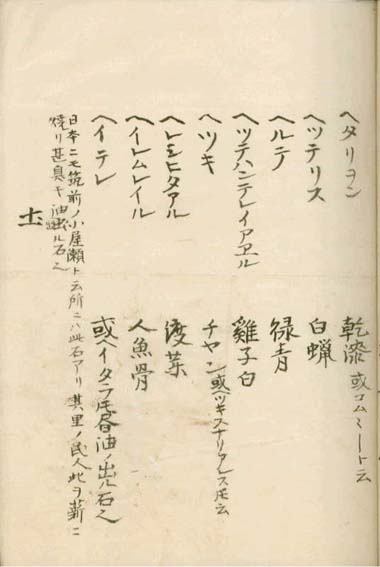 ヘタリヨン　乾漆 或コムミートモ云
ヘツテリス　白蝋
ヘルテ　緑青
ヘツテハンテレイアヱル　雞子白
ヘツキ　チヤン 或ヘツキスナリアレス圧云
ヘレシヒタアル　渡菜
ヘイレムレイル　人魚骨
ヘイテレ　或ヘイタラ圧 油ノ出ル石也
日本ニモ筑前ノ小屋瀬ト云所ニハ此石アリ 其里ノ民人此ヲ薪ニ
焼リ甚臭キ油出ル石也